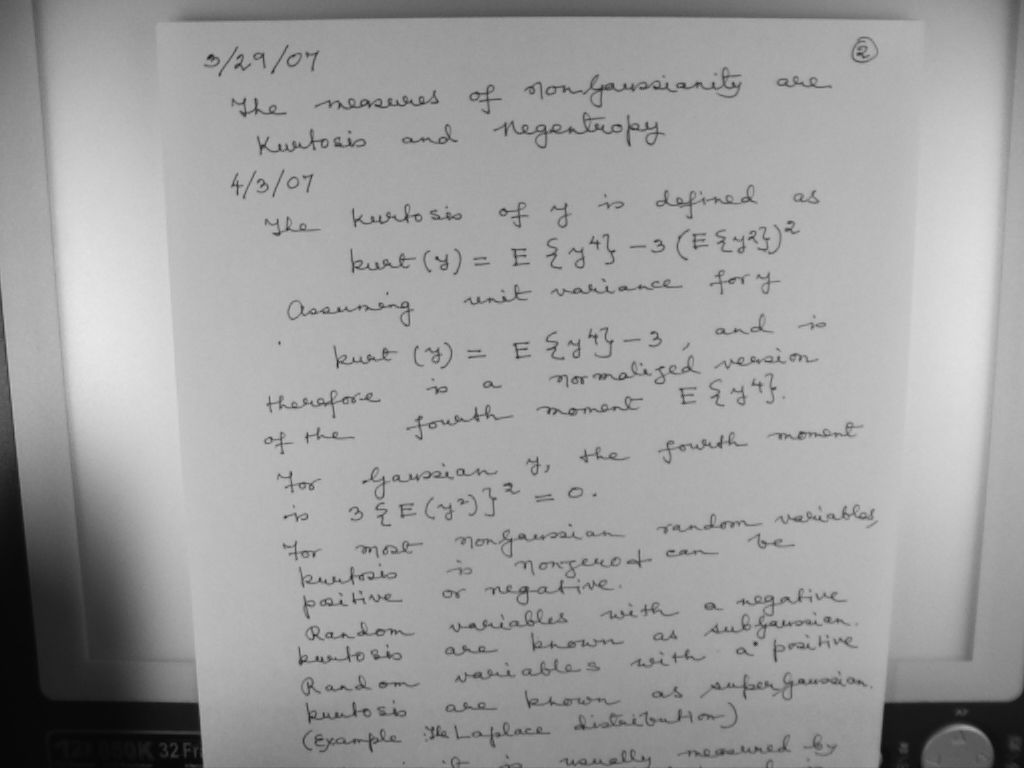 3/29/07
②
The measures of nonGaussianity are
Kurtosis and Negentropy
4/3/07
The kurtosis of y is defined as
kurt (y) = E {y⁴} – 3 (E {y²})²
Assuming unit variance for y
kurt (y) = E {y⁴} – 3 , and is
therefore is a normalized version
of the fourth moment E {y⁴}.
For Gaussian y, the fourth moment
is 3 {E (y²)}² = 0.
For most nonGaussian random variables,
kurtosis is nonzero & can be
positive or negative.
Random variables with a negative
kurtosis are known as subGaussian.
Random variables with a positive
kurtosis are known as superGaussian.
(Example The Laplace distribution)
it is usually measured by
32 Fr